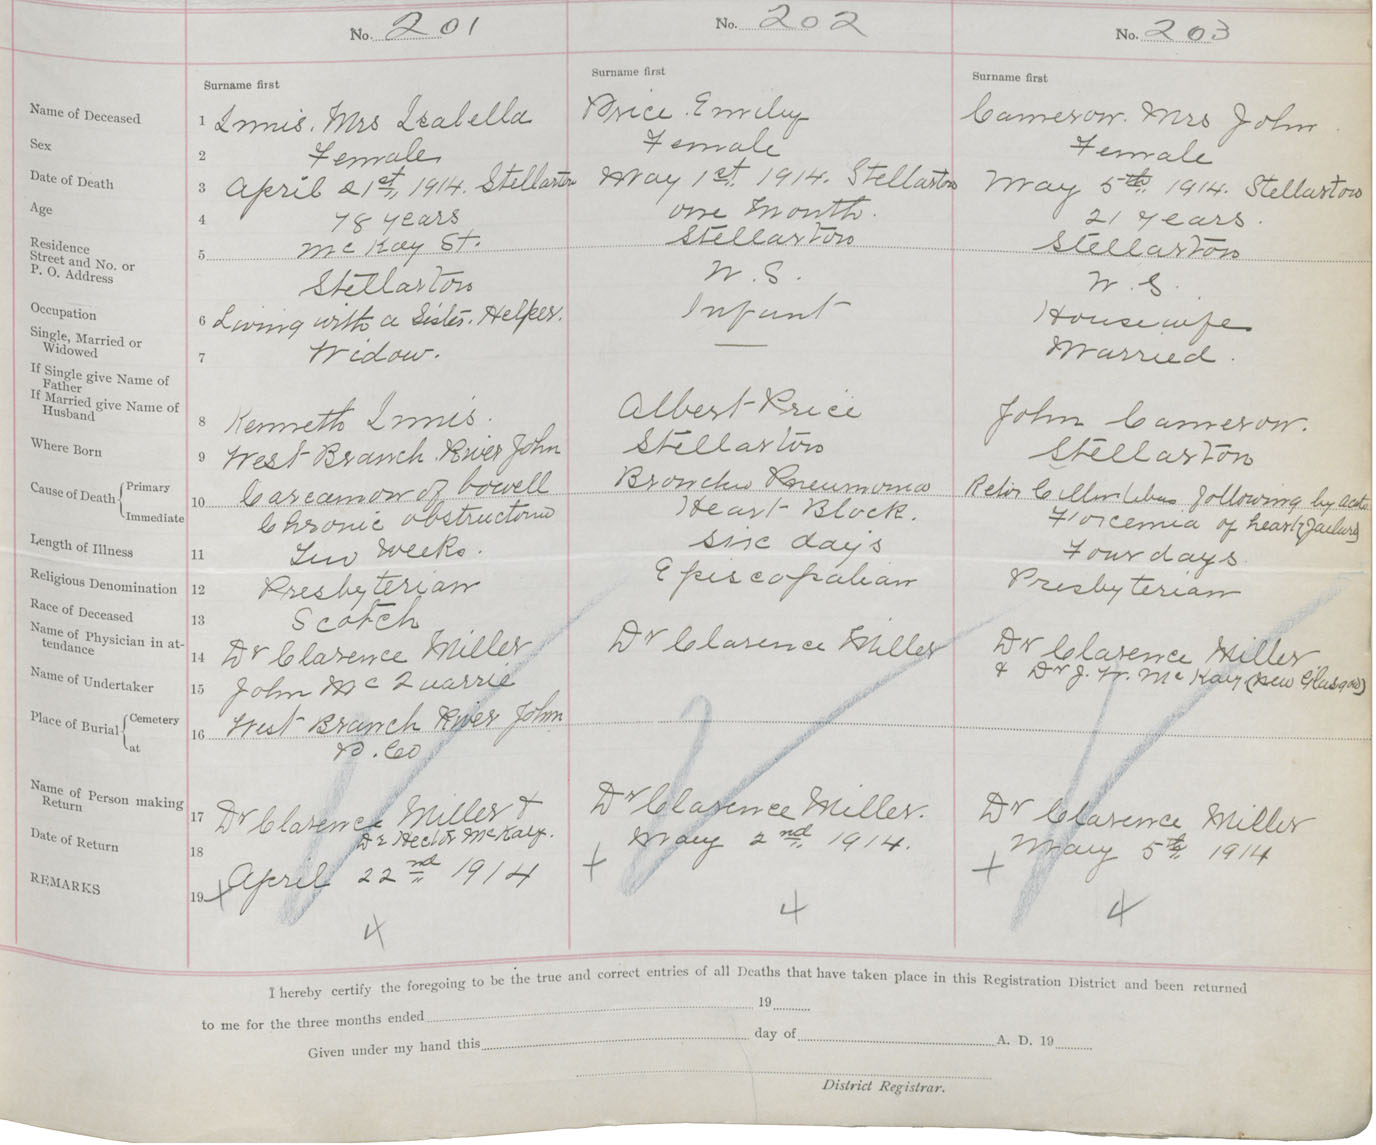 No. 201
No. 202
No. 203
Surname first
Surname first
Surname first
Name of Deceased 1 Innis. Mrs Isabella
Price. Emiley
Cameron. Mrs John
Sex 2 Female
Female
Female
Date of Death 3 April 21st, 1914. Stellarton
May 1st. 1914. Stellarton
May 5th 1914. Stellarton
Age 4 78 years
one Month.
21 years.
Residence
Street and No. or
P. O. Address
5 McKay St.
Stellarton
Stellarton
N. S.
Stellarton
N. S.
Occupation 6 Living with a Sister. Helper.
Infant
Housewife
Single, Married or
Widowed
7 Widow.
—
Married.
If Single give Name of
Father
If Married give Name of
Husband
8 Kenneth Innis.
Albert Price
John Cameron.
Where Born 9 West Branch River John
Stellarton
Stellarton
Cause of Death { Primary
Immediate
10 of bowell
Chronic
Broncho Pneumonia
Heart Block.
following by acute
of heart (failure)
Length of Illness 11 Two weeks.
six days
Four days
Religious Denomination 12 Presbyterian
Episcopalian
Presbyterian
Race of Deceased 13 Scotch
Name of Physician in at-
tendance
14 Dr Clarence Miller
Dr Clarence Miller
Dr Clarence Miller
& Dr J. W. McKay (New Glasgow)
Name of Undertaker 15 John McQuarrie
Place of Burial { Cemetery
at
16 West Branch River John
P. Co
Name of Person making
Return
17 Dr Clarence Miller +
Dr Hector McKay.
Dr Clarence Miller.
Dr Clarence Miller
Date of Return 18
April 22nd 1914
May 2nd 1914.
May 5th 1914
REMARKS 19 +
+
+
4
4
4
I hereby certify the foregoing to be the true and correct entries of all Deaths that have taken place in this Registration District and been returned
to me for the three months ended 19
Given under my hand this day of A. D. 19
District Registrar.